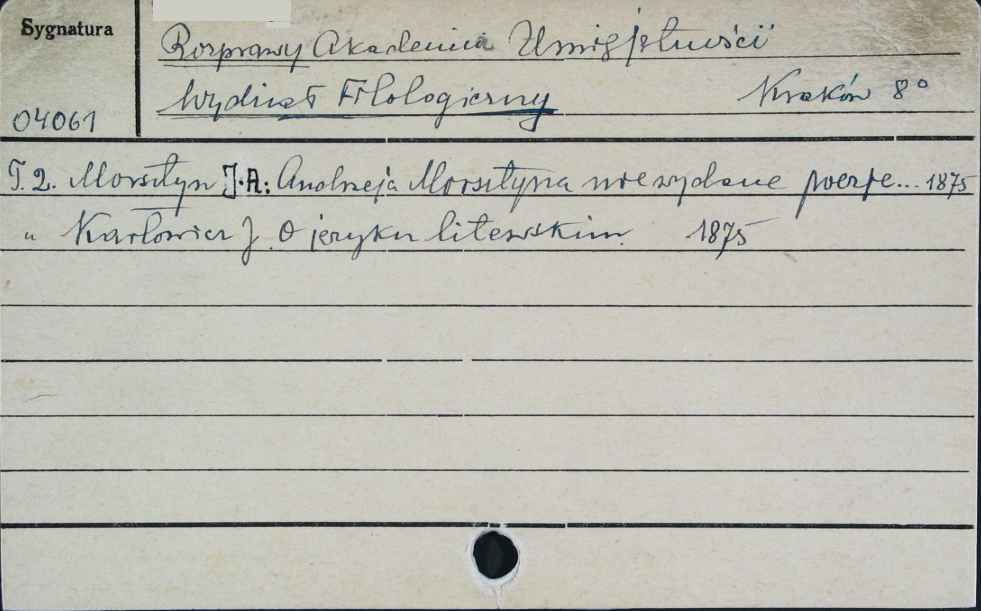 Sygnatura
04061
Rozprawy Akademia Umiejętności
Wydział Filologiczny Kraków 8°
T. 2. Morsztyn J. A: Andrzeja Morsztyna niewydane poezje... 1875
" Karłowicz J. O języku litewskim. 1875